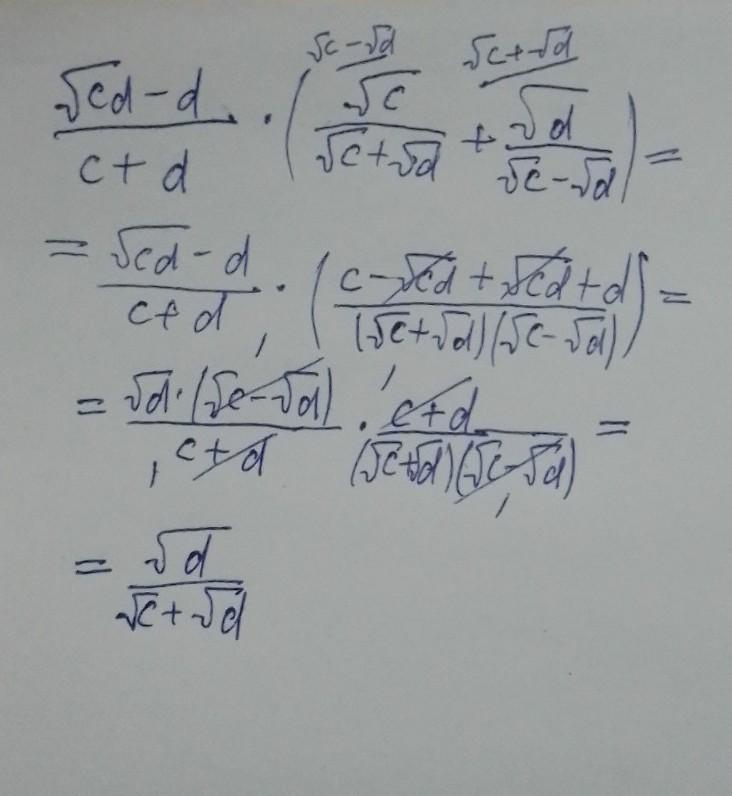 \frac{\sqrt{cd}-d}{c+d} \cdot \left( \frac{\sqrt{c}}{\sqrt{c}+\sqrt{d}}^{\sqrt{c}-\sqrt{d}} + \frac{\sqrt{d}}{\sqrt{c}-\sqrt{d}}^{\sqrt{c}+\sqrt{d}} \right) =
= \frac{\sqrt{cd}-d}{c+d} \cdot \left( \frac{c-\sqrt{cd}+\sqrt{cd}+d}{(\sqrt{c}+\sqrt{d})(\sqrt{c}-\sqrt{d})} \right) =
= \frac{\sqrt{d} \cdot (\sqrt{c}-\sqrt{d})^{1}}{_{1} c+d} \cdot \frac{^{1} c+d}{(\sqrt{c}+\sqrt{d})(\sqrt{c}-\sqrt{d})_{1}} =
= \frac{\sqrt{d}}{\sqrt{c}+\sqrt{d}}